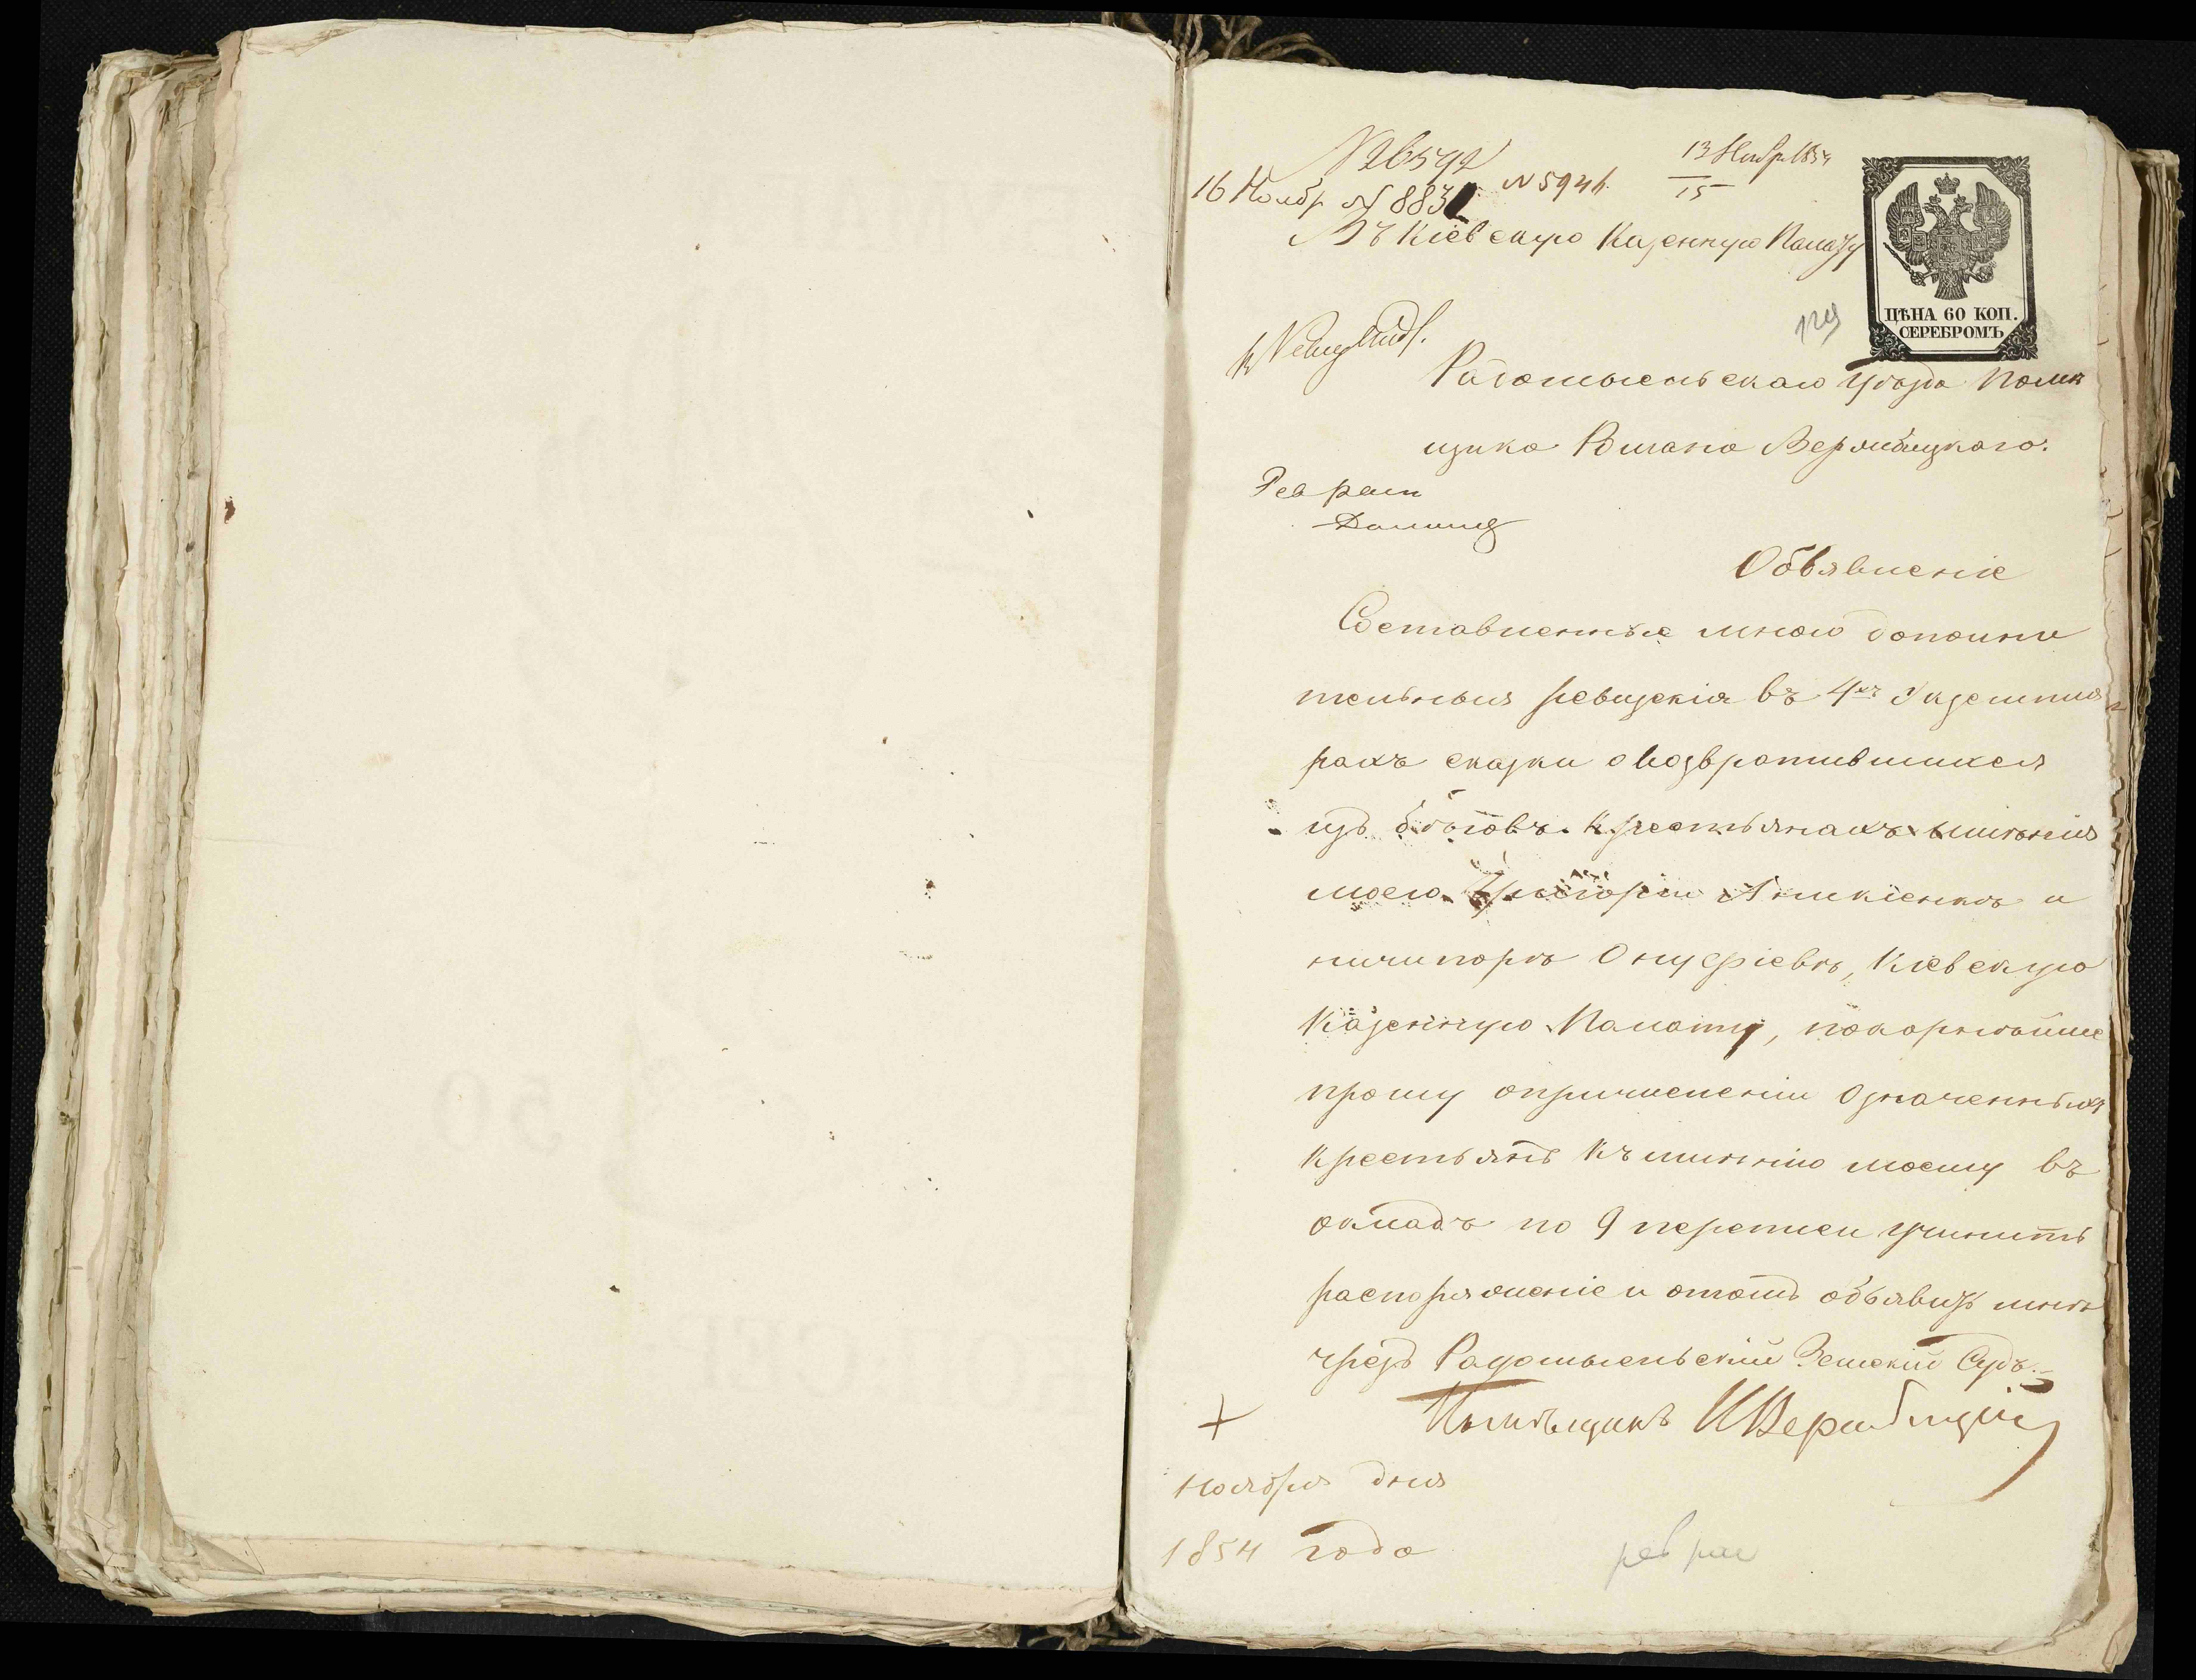 № 26592
13 Ноябр 1854
15
16 Ноябр № 883
№ 5941
Въ Кіевскую Казенную Палату
ЦѢНА 60 КОП.
СЕРЕБРОМЪ
129
Радомысльскаго Уѣзда Помѣ
щика Романа Вержбицкого.
Рев
Объявленіе
Составленные мною дополни
тельныя ревизскія въ 4хъ Экземпля
рахъ сказки о возвратившихся
изъ бѣговъ крестьянахъ имѣнія
моего Григоріи Аникіенкѣ и
ничипорѣ Онуфріевѣ, Кіевскую
Казенную Палату, покорнѣйше
прошу опричисленіи Означенныхъ
крестьянъ къ имѣнію моему въ
окладъ по 9 переписи учинить
распоряженіе и отомъ объявить мнѣ
чрезъ Радомысльскій Земскій Судъ.
Помѣщикъ Вержбицкій
Ноября дня
1854 года
рев